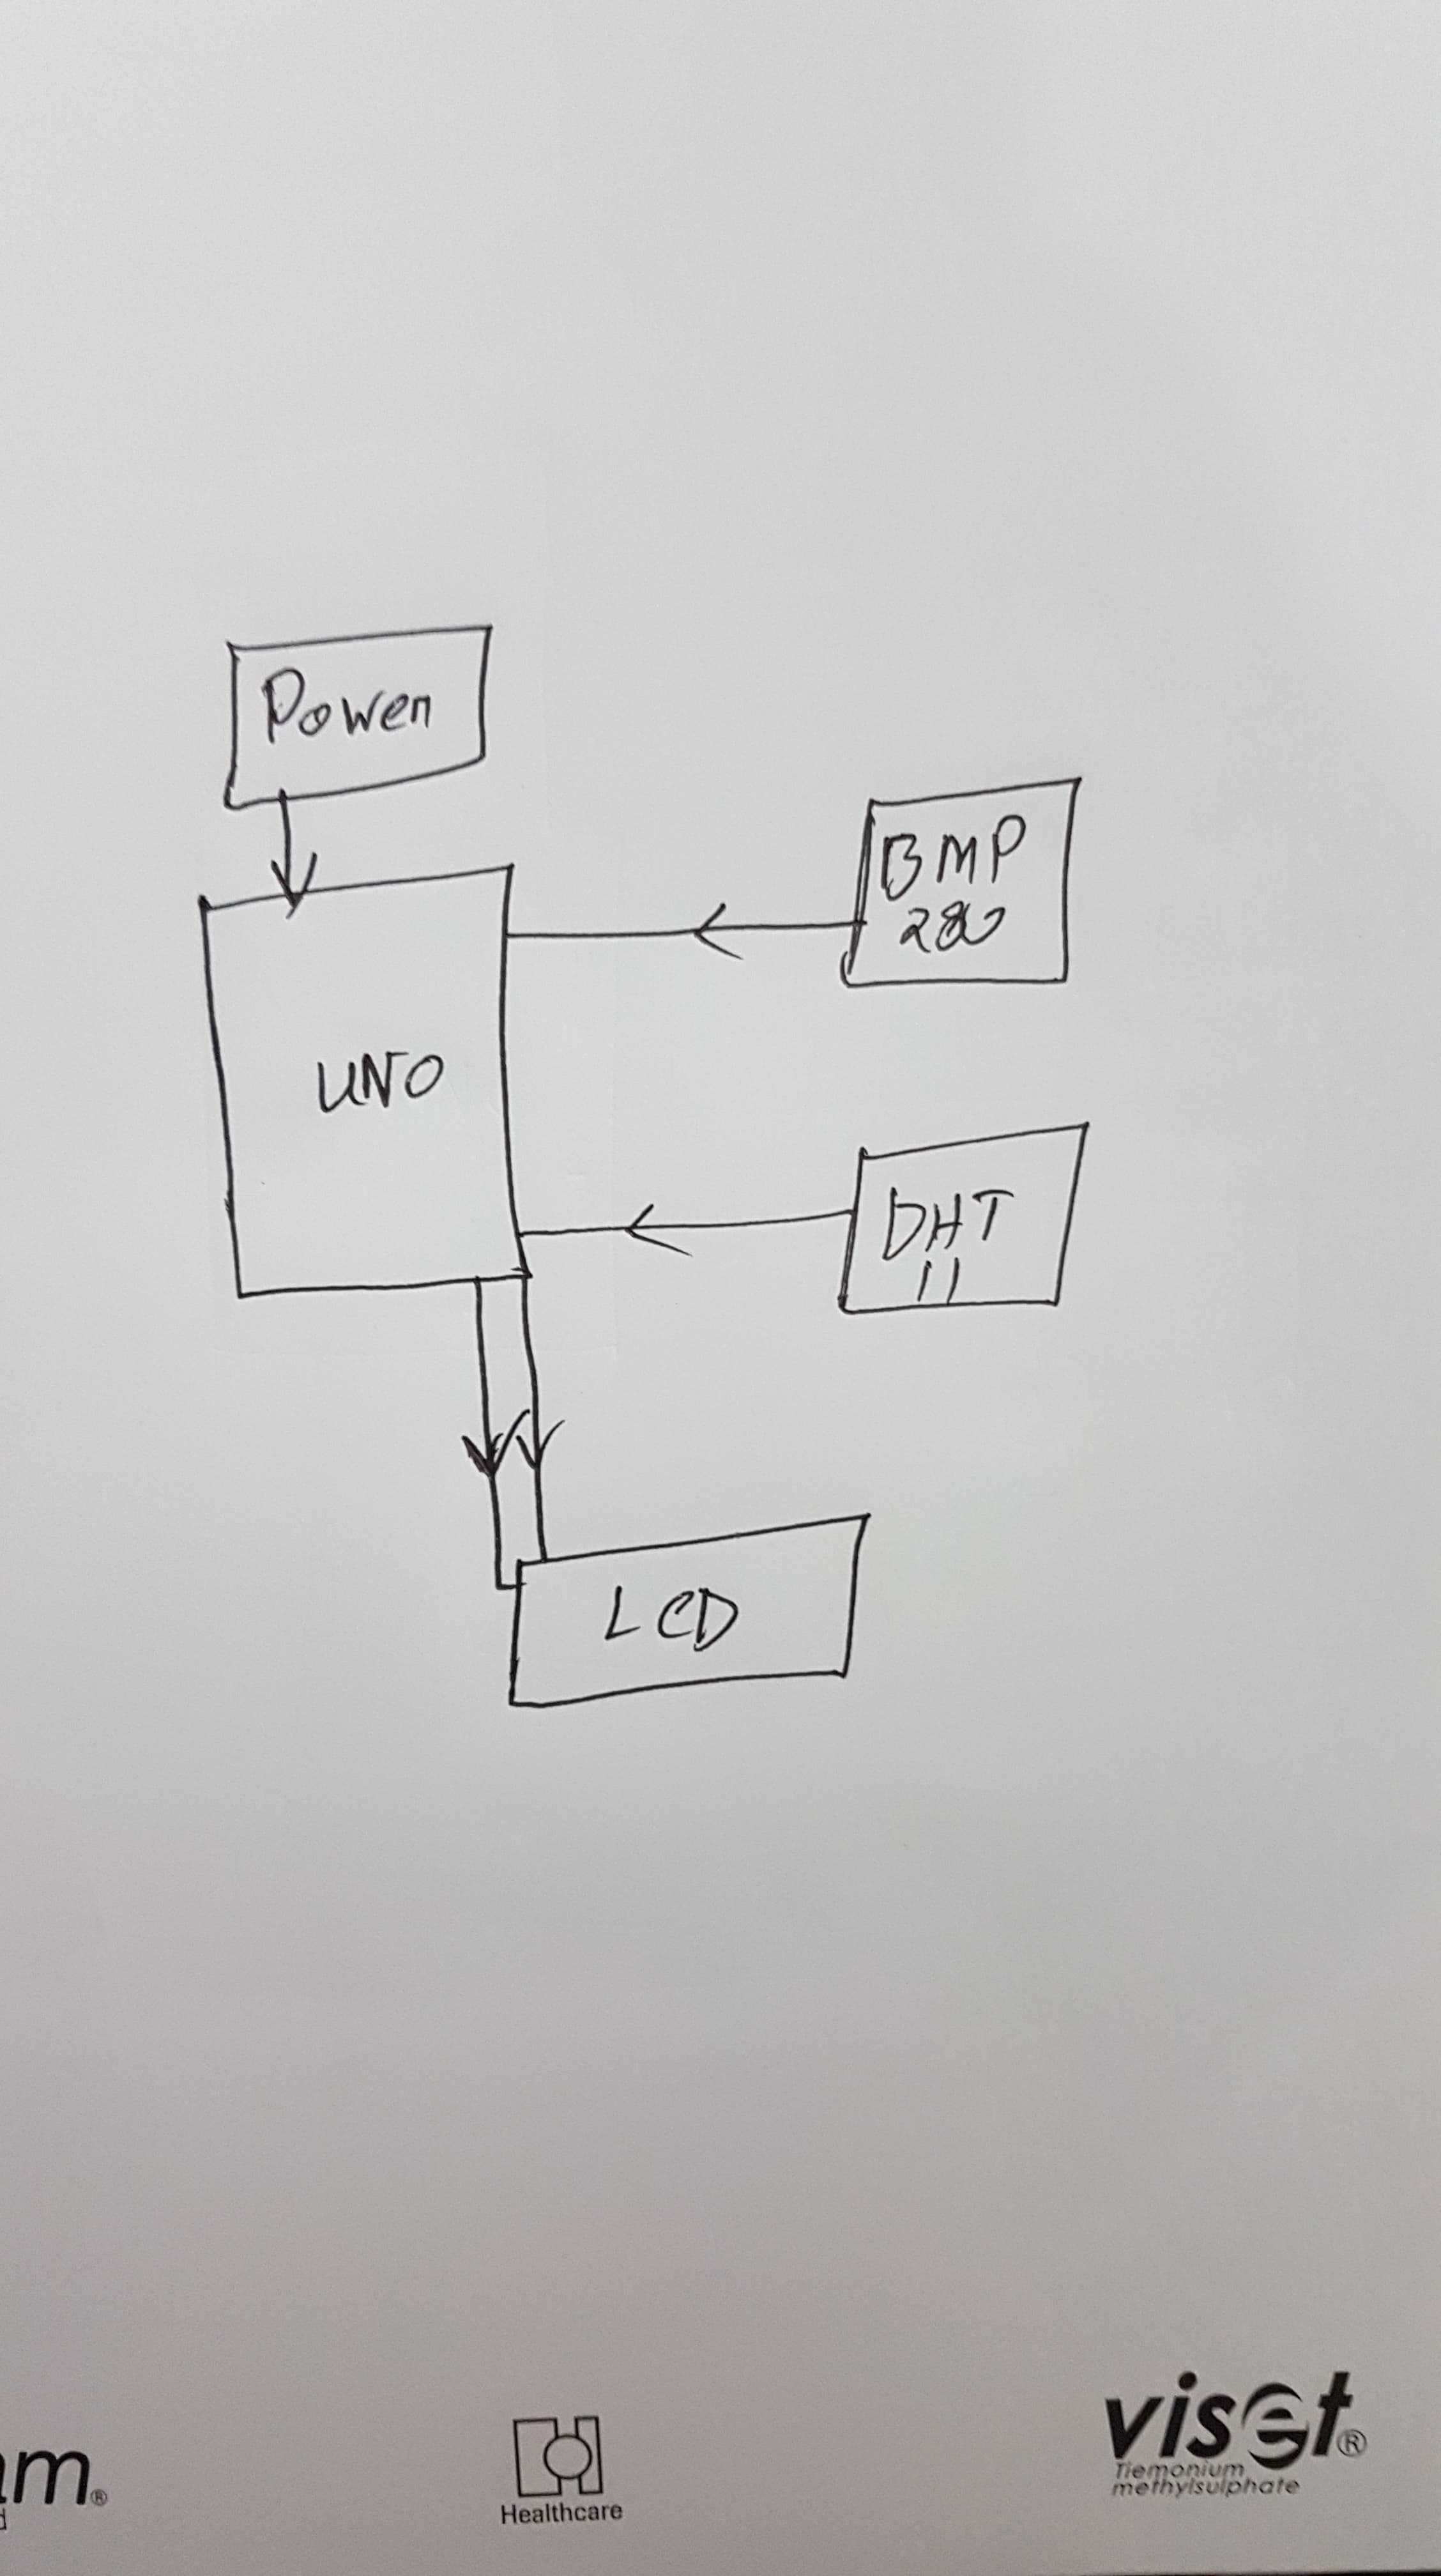 Power
BMP
280
UNO
DHT
11
LCD
am®
Healthcare
viset®
Tiemonium
methylsulphate